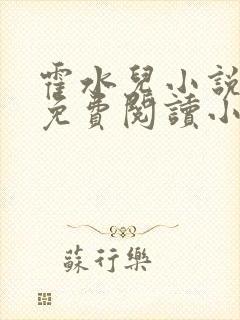 霍水兒小說
免費閱讀小
蘇行樂